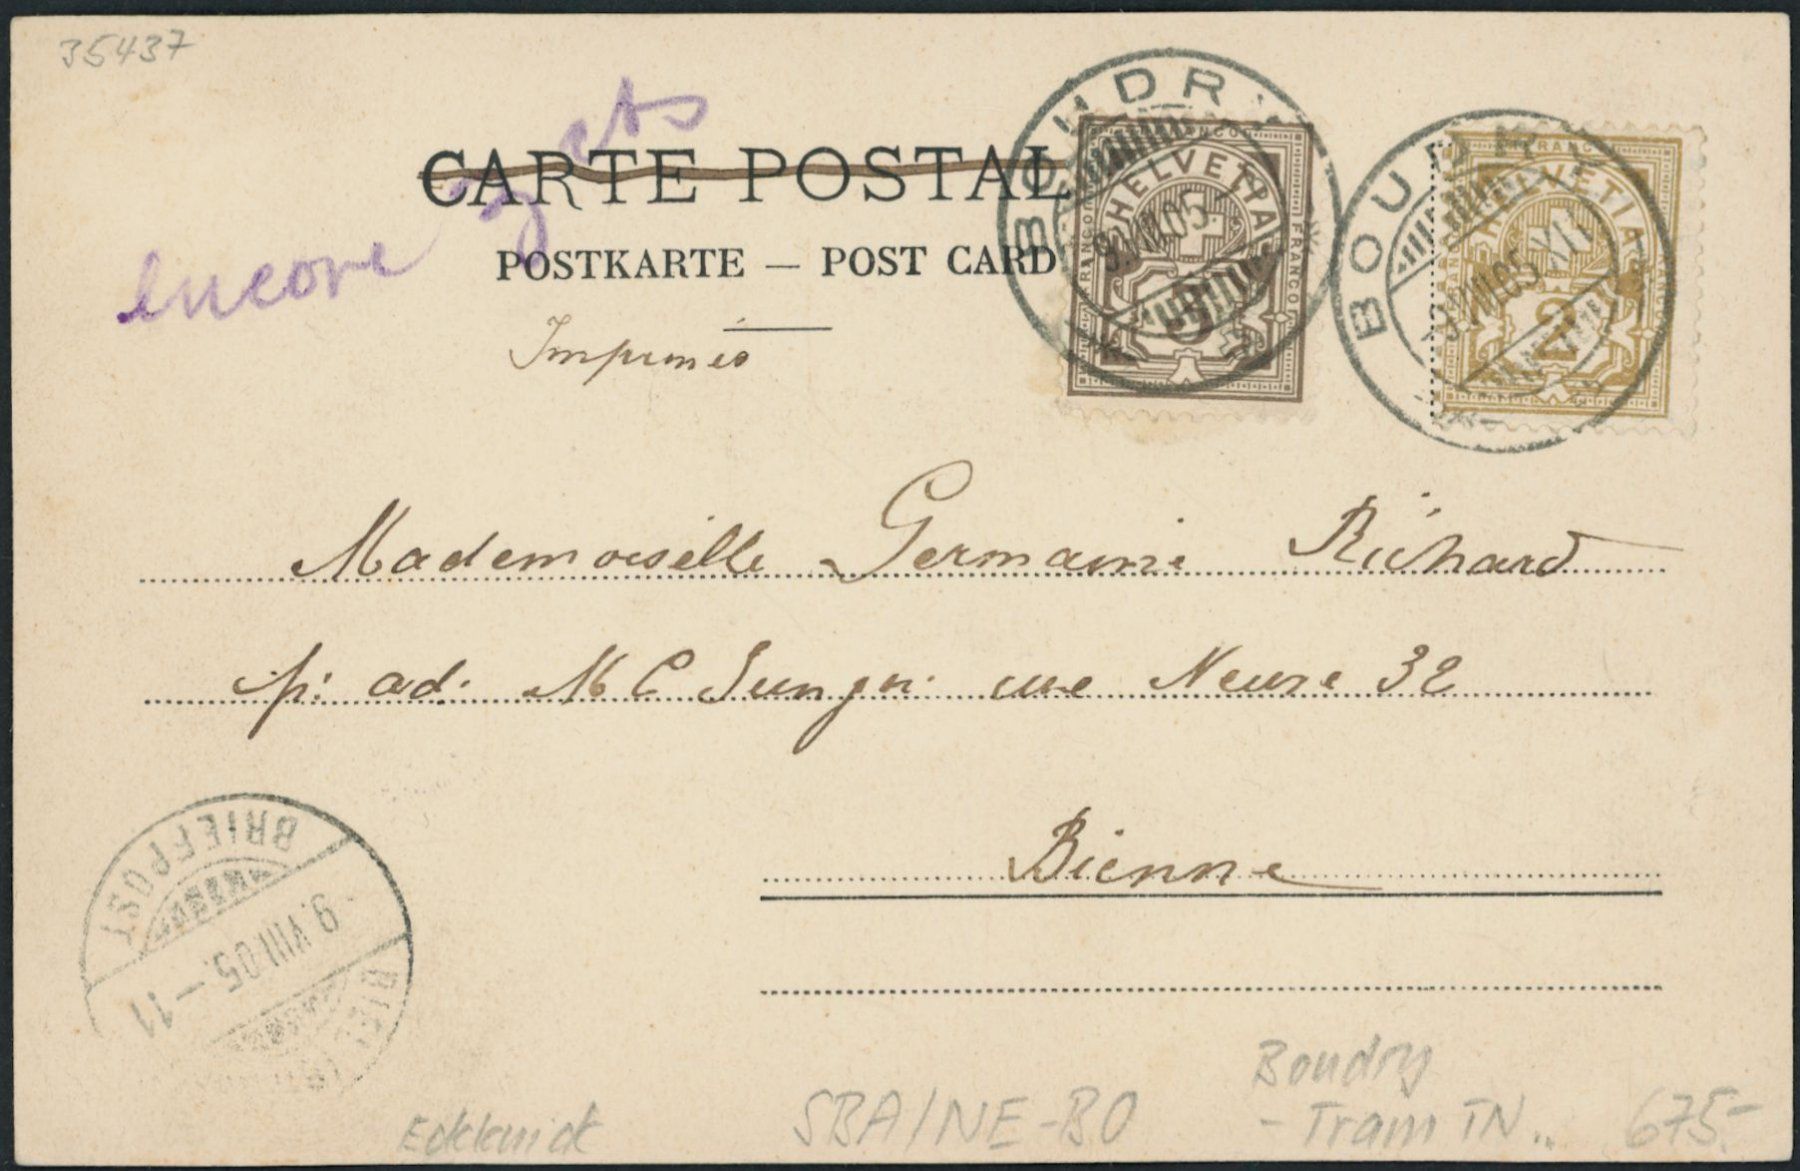 35437
encore 3 cts
CARTE POSTAL
POSTKARTE — POST CARD
Imprimés
BOUDRY
9.VIII.05
FRANCO
HELVETIA
FRANCO
BOUDRY
9.VIII.05 XII
FRANCO
HELVETIA
FRANCO
2
Mademoiselle Germaine Richard
p: ad. M C rue Neuve 32
Bienne
BRIEFPOST
9.VIII.05.–11
BIEL
Boudry
SBA/NE-BO – Tram TN.. 675.-